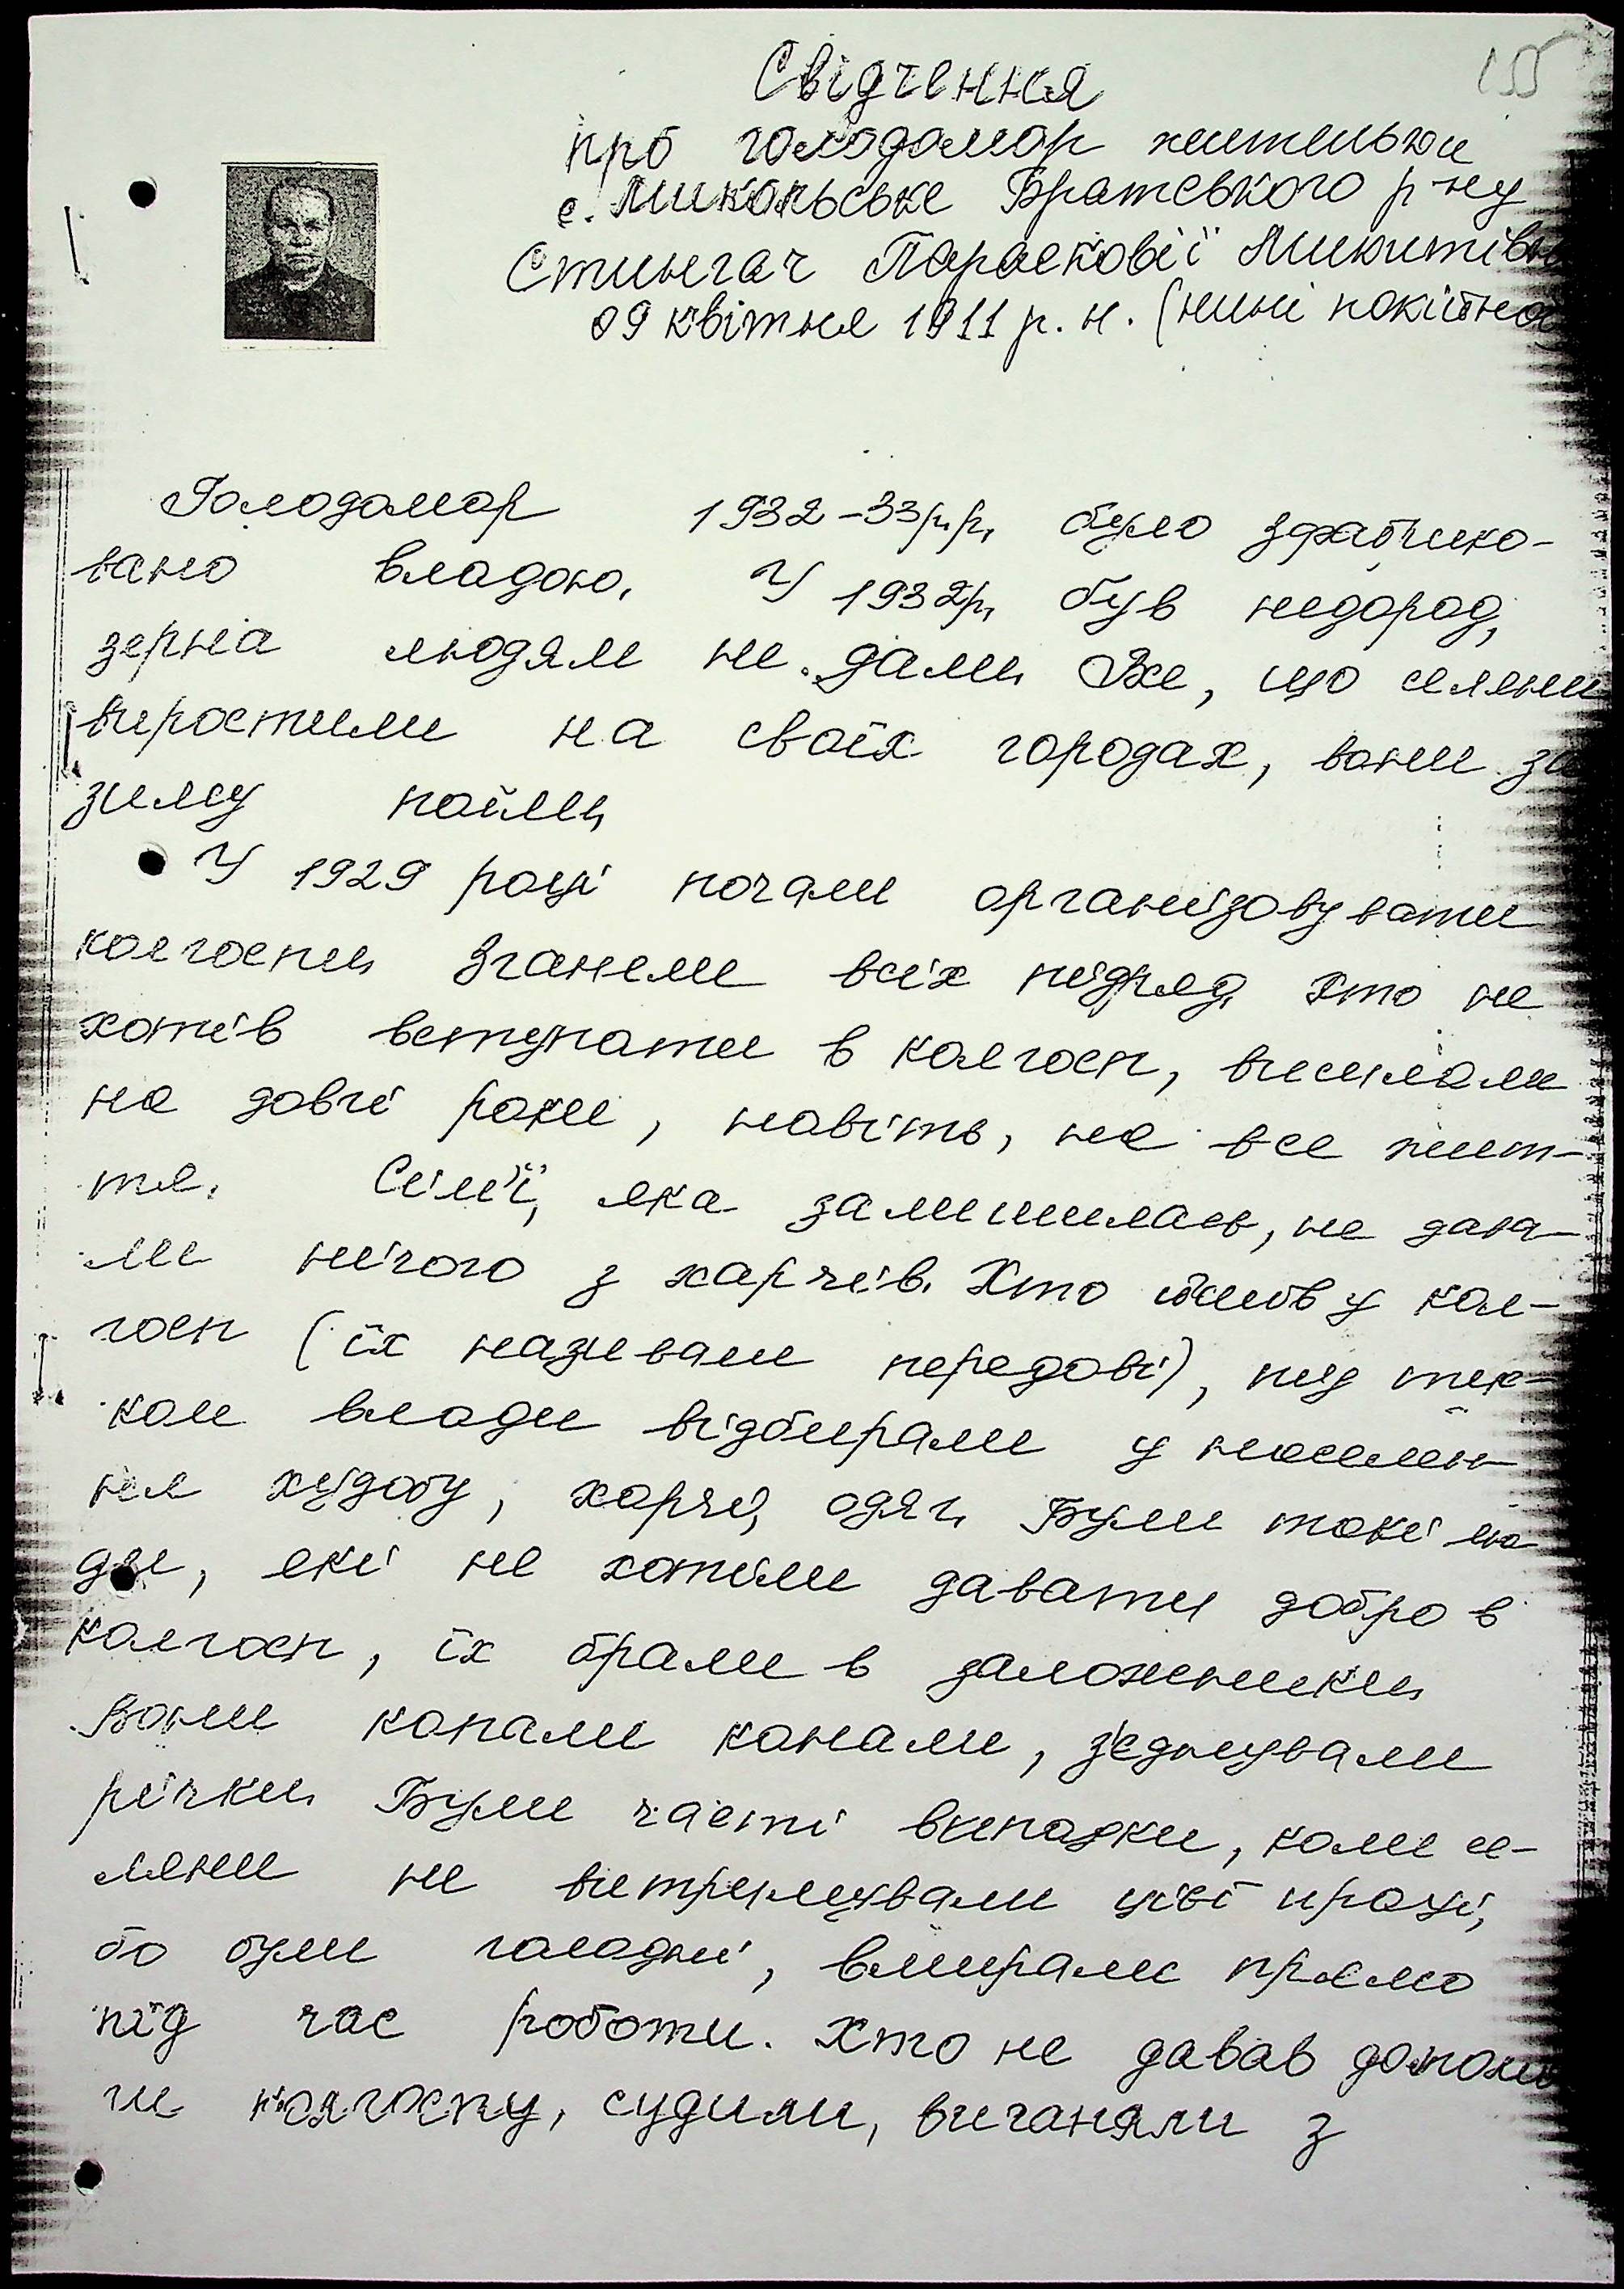 155
Свідчення
про голодомор жительки
с. Микольське Братського р-ну
Стингач Парасковії Микитівн
09 квітня 1911 р. н. (нині покійна)
Голодомор 1932-33р.р. було зфабрико-
вано владою. У 1932р. був недород,
зерна людям не дали. Все, що селяни
виростили на своїх городах, вони за
зиму поїли.
У 1929 році почали організовувати
колгоспи. Зганяли всіх підряд. Хто не
хотів вступати в колгосп, висилали
на довгі роки, навіть, на все жит-
тя. Сім'ї, яка залишилась, не дава-
ли нічого з харчів. Хто йшов у кол-
госп (їх називали передові), під тис-
ком влади відбирали у населен-
ня худобу, харчі, одяг. Були такі лю
ди, які не хотіли давати добро в
колгосп, їх брали в заложники.
Вони копали канали, з'єднували
річки. Були часті випадки, коли се-
ляни не витримували цієї праці,
бо були голодні, вмирали прямо
під час роботи. Хто не давав допомо
ги колгоспу, судили, виганяли з